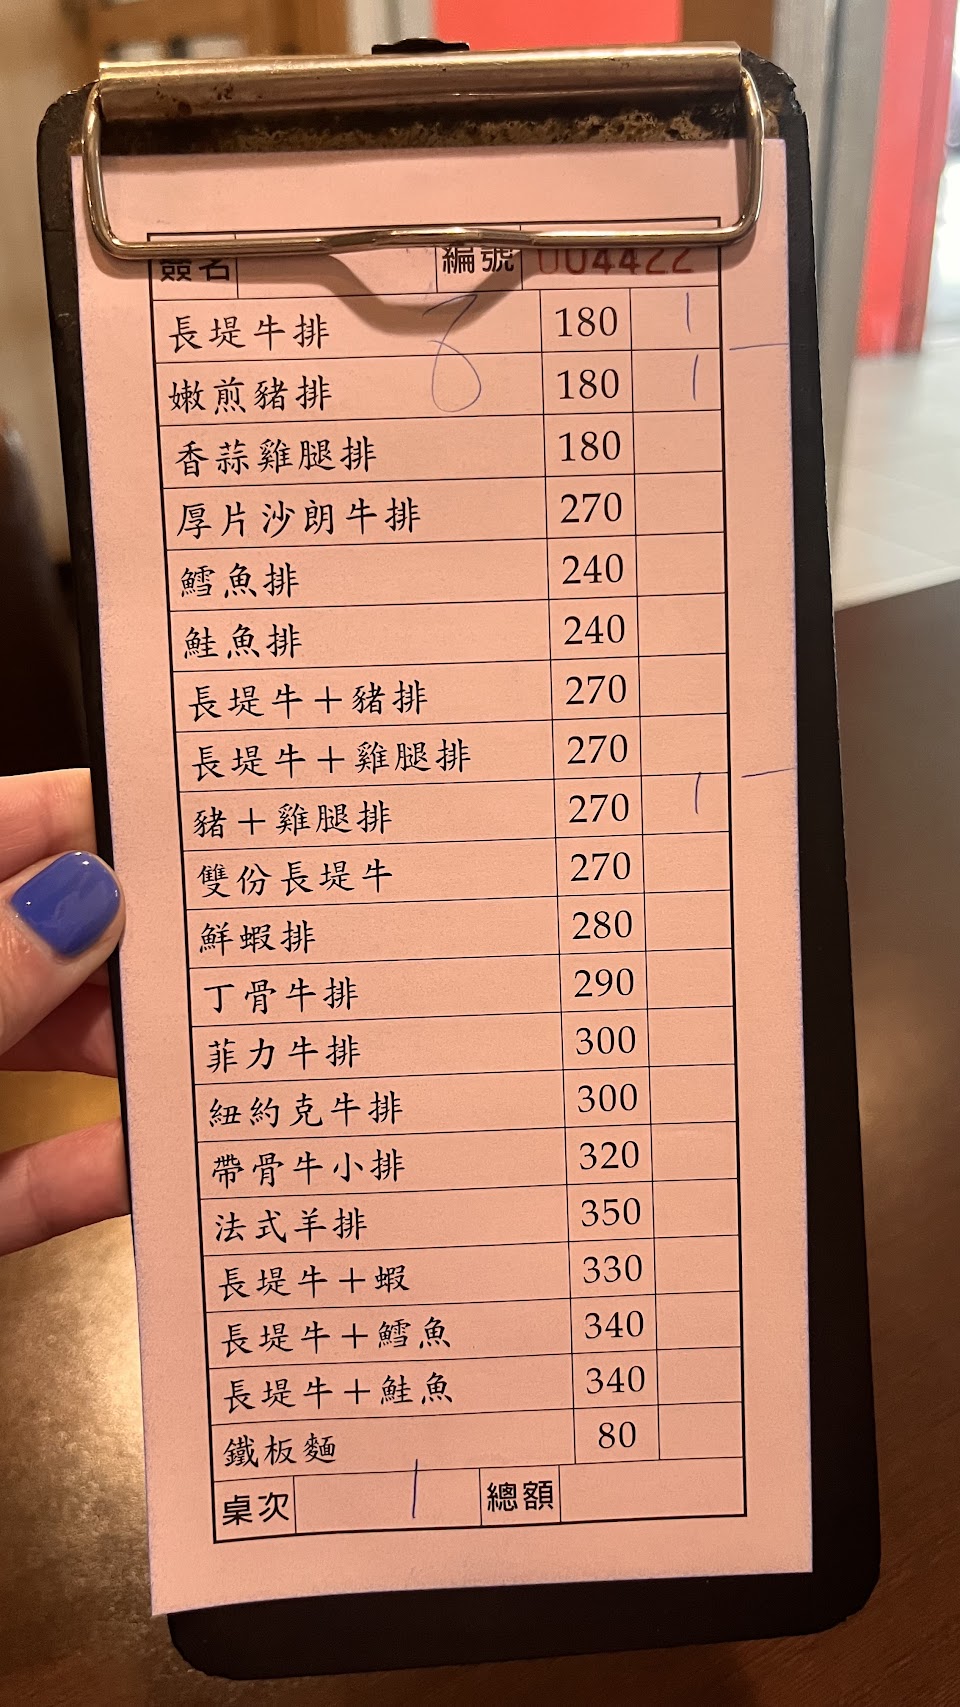 簽名 編號 004422
長堤牛排 180 1
嫩煎豬排 180 1
香蒜雞腿排 180
厚片沙朗牛排 270
鱈魚排 240
鮭魚排 240
長堤牛＋豬排 270
長堤牛＋雞腿排 270
豬＋雞腿排 270 1
雙份長堤牛 270
鮮蝦排 280
丁骨牛排 290
菲力牛排 300
紐約克牛排 300
帶骨牛小排 320
法式羊排 350
長堤牛＋蝦 330
長堤牛＋鱈魚 340
長堤牛＋鮭魚 340
鐵板麵 80
桌次 1 總額